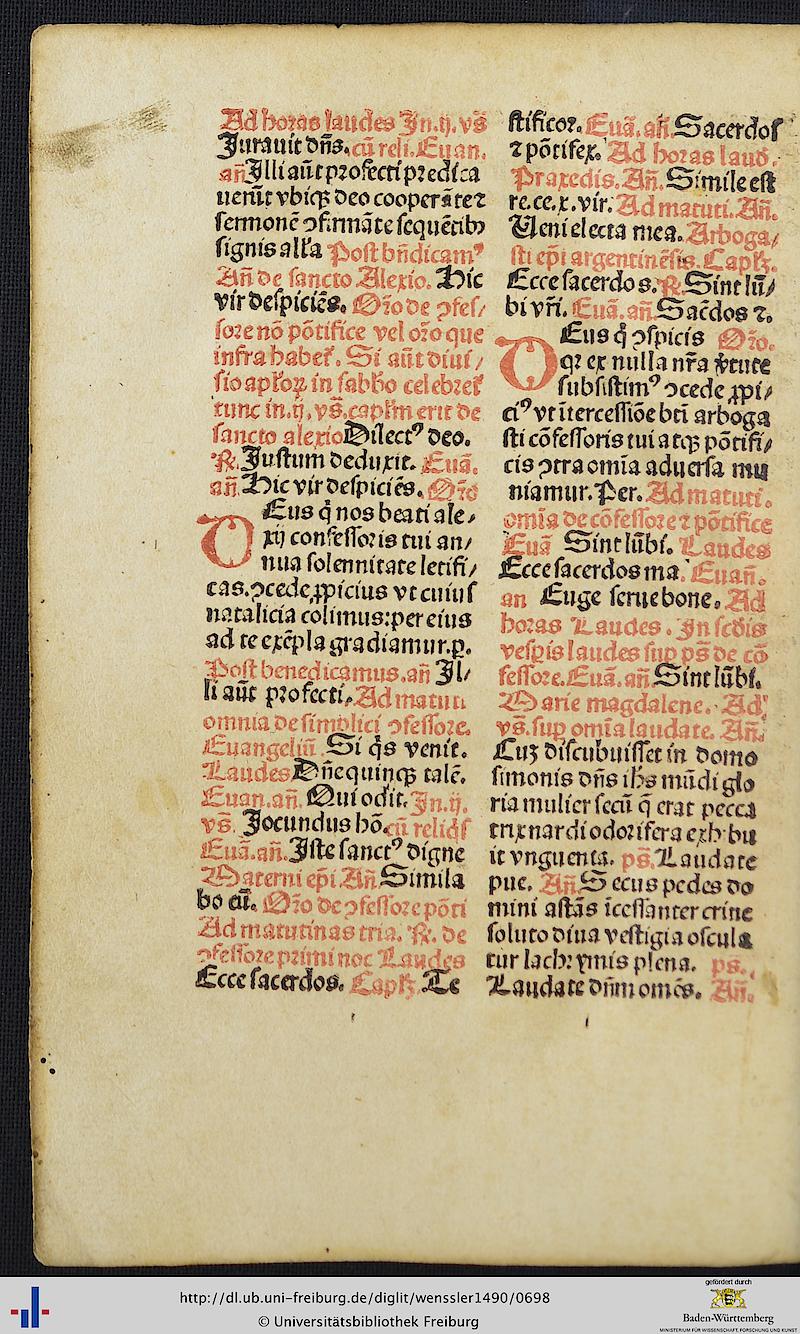 Ad horas laudes In.ij. vs̄
Jurauit dn̄s. cū reli. Euan.
an̄ Illi aūt profecti predica
uerūt vbiqꝫ deo cooperāte ⁊
sermonē ꝯfirmāte sequētibꝰ
signis alľa Post bn̄dicamꝰ
An̄ de sancto Alexio. Hic
vir despiciēs. Or̄o de ꝯfes/
sore nō pōtifice vel or̄o que
infra habet̄. Si aūt diui/
sio apľoꝝ in sabb̄o celebret̄
tunc in.ij. vs̄. capľm erit de
sancto alexio Dilectꝰ deo.
℟. Justum deduxit. Euā.
an̄. Hic vir despiciēs. Or̄o
DEus q̄ nos beati ale/
xij confessoris tui an/
nua solennitate letifi/
cas. ꝯcede ꝓpicius vt cuius
natalicia colimus: per eius
ad te exēpla gradiamur. p.
Post benedicamus. an̄ Il/
li aūt profecti. Ad matuti
omnia de simplici ꝯfessore.
Euangeliū. Si q̄s venit.
Laudes Dn̄e quinqꝫ talē.
Euan. an̄. Qui odit. In.ij.
vs̄. Jocundus hō. cū reliq̄s
Euā. an̄. Iste sanctꝰ digne
Materni ep̄i. An̄ Simila
bo eū. Or̄o de ꝯfessore pōti
Ad matutinas tria. ℟. de
ꝯfessore primi noc Laudes
Ecce sacerdos. Capľꝫ. Te
stificor. Euā. an̄. Sacerdos
⁊ pōtifex. Ad horas laud.
Praxedis. An̄. Simile est
re. ce. x. vir. Ad matuti. An̄.
Veni electa mea. Arboga/
sti ep̄i argentinēsis. Capľꝫ.
Ecce sacerdos. ℟. Sint lū/
bi vr̄i. Euā. an̄. Sac̄dos ⁊.
DEus q̄ ꝯspicis Or̄o.
qꝛ ex nulla nr̄a v̄tute
subsistimꝰ ꝯcede ꝓpi/
ciꝰ vt ītercessiōe bt̄i arboga
sti cōfessoris tui atqꝫ pōtifi/
cis ꝯtra omīa aduersa mu
niamur. Per. Ad matuti.
omīa de cōfessore ⁊ pōtifice
Euā Sint lūbi. Laudes
Ecce sacerdos ma. Euan̄.
an Euge serue bone. Ad
horas Laudes. In sc̄dis
vesp̄is laudes sup ps̄ de cō
fessore. Euā. an̄ Sint lūbi.
Marie magdalene. Ad
vs̄. sup omīa laudate. An̄.
Cuꝫ discubuisset in domo
simonis dn̄s ihs̄ mūdi glo
ria mulier secū q̄ erat pecca
trix nardi odorifera exhibu
it vnguenta. ps̄. Laudate
pue. An̄. Secus pedes do
mini astās īcessanter crine
soluto diua vestigia oscula
tur lachrymis plena. ps̄.
Laudate dn̄m omēs. An̄.
http://dl.ub.uni-freiburg.de/diglit/wenssler1490/0698
© Universitätsbibliothek Freiburg
gefördert durch
Baden-Württemberg
MINISTERIUM FÜR WISSENSCHAFT, FORSCHUNG UND KUNST